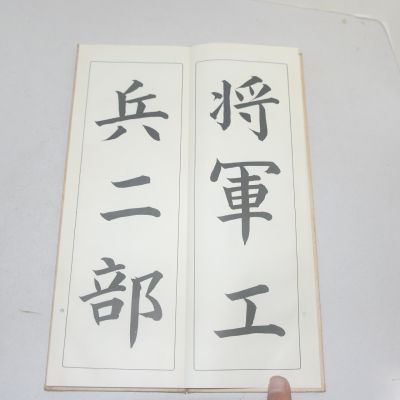 将軍工
兵二部